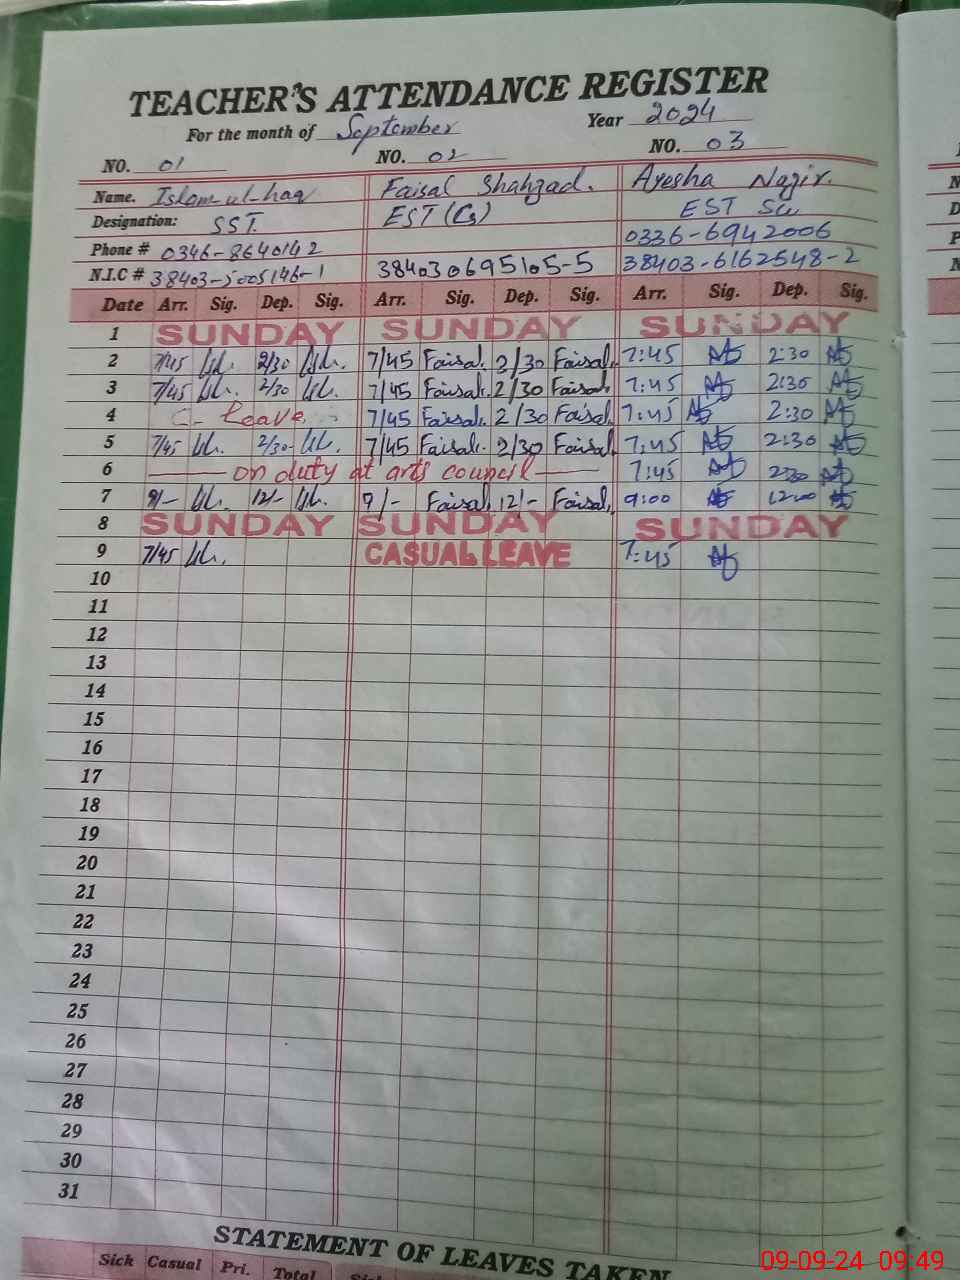 TEACHER'S ATTENDANCE REGISTER
For the month of September Year 2024
NO. 01 NO. 02 NO. 03
Name. Islam-ul-haq Faisal Shahzad. Ayesha Nazir.
Designation: SST. EST (Cs) EST Sci
Phone # 0346-8640142 0336-6942006
N.I.C # 38403-5005146-1 3840306695105-5 38403-6162548-2
Date Arr. Sig. Dep. Sig. Arr. Sig. Dep. Sig. Arr. Sig. Dep. Sig.
1 SUNDAY SUNDAY SUNDAY
2 7/45 2/30 7/45 Faisal. 2/30 Faisal. 7:45 2:30
3 7/45 2/30 7/45 Faisal. 2/30 Faisal. 7:45 2:30
4 Leave 7/45 Faisal. 2/30 Faisal. 7:45 2:30
5 7/45 2/30 7/45 Faisal. 2/30 Faisal. 7:45 2:30
6 on duty at arts council 7:45 2:30
7 9/- 12/- 9/- Faisal. 12/- Faisal. 9:00 12:00
8 SUNDAY SUNDAY SUNDAY
9 7/45 CASUAL LEAVE 7:45
10
11
12
13
14
15
16
17
18
19
20
21
22
23
24
25
26
27
28
29
30
31
STATEMENT OF LEAVES TAKEN
Sick Casual Pri. Total Sick
09-09-24 09:49